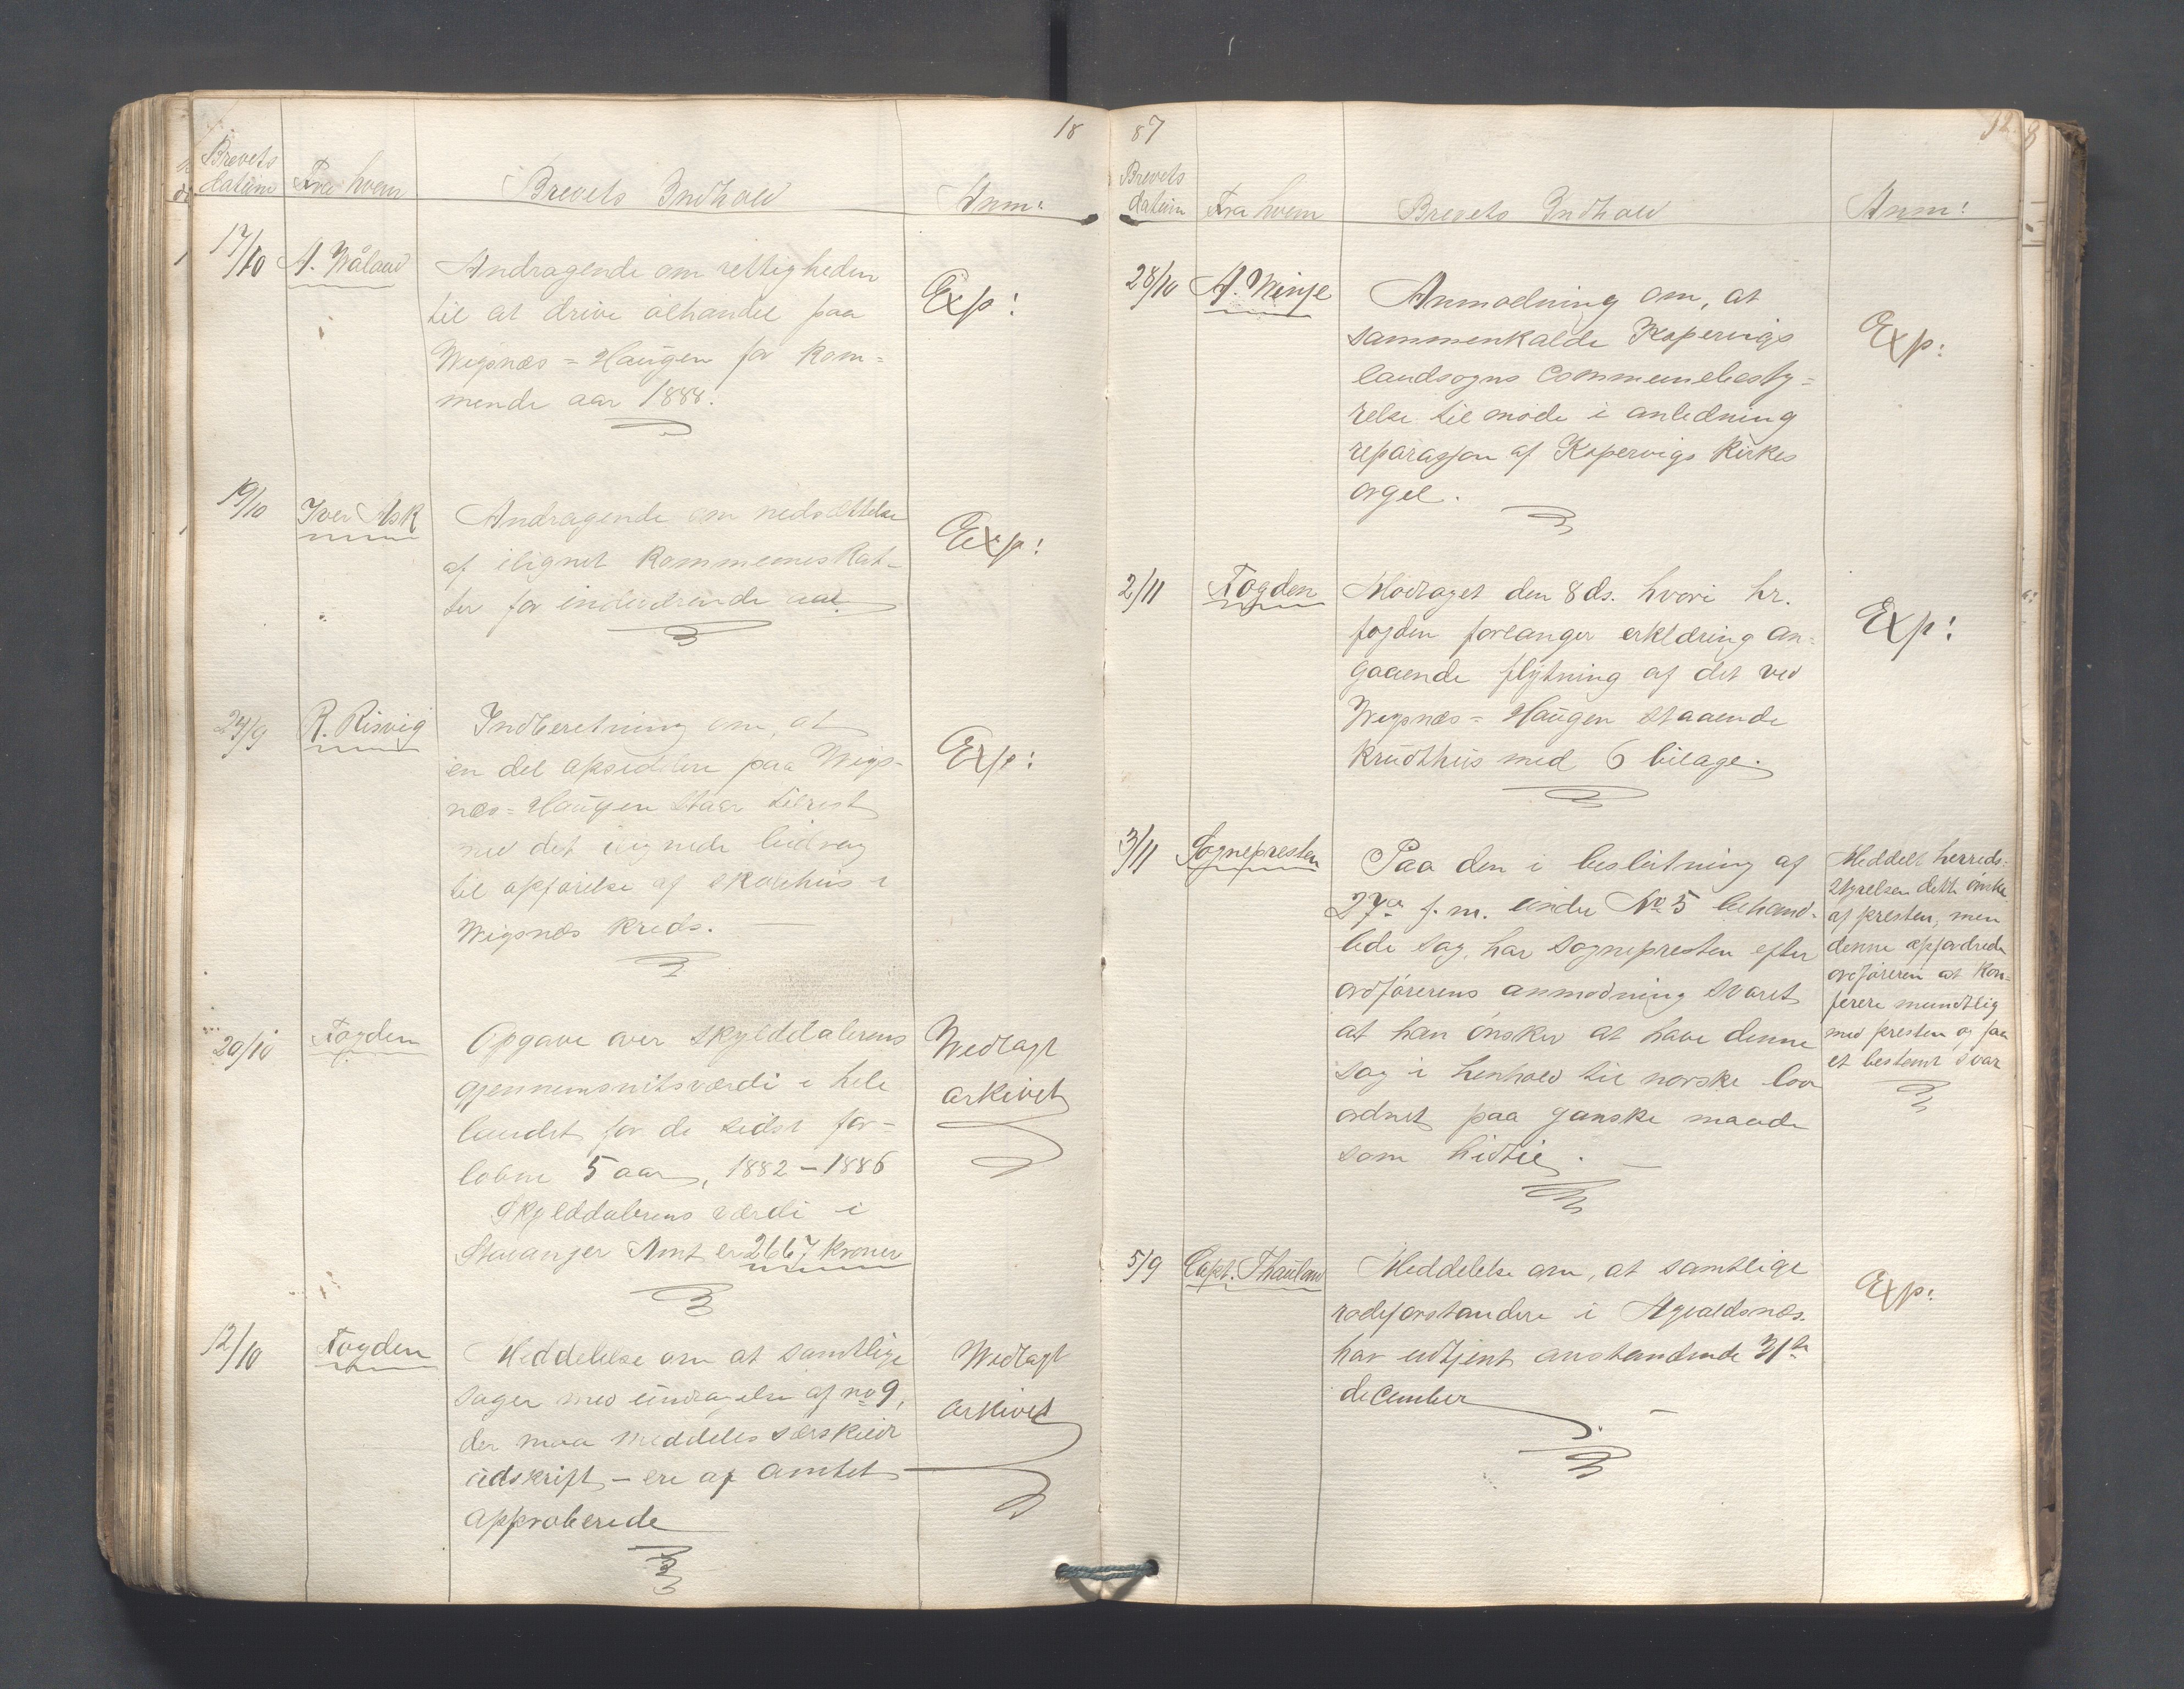 18
Brevets
datum
Fra hvem
Brevets Indhold
Anm:
17/10
A. Wåland
Andragende om rettigheden
til at drive ølhandel paa
Wigsnæs = Haugen for kom=
mende aar 1888.
Exp!
19/10
Iver Ask
Andragende om nedsættelse
af ilignet kommuneskat-
ter for indeværende aar.
Exp!
24/9
R. Risvig
Indberetning om, at
en del opsiddere paa Wigs-
næs = Haugen staar tilrest
med det ilignede bidrag
til opførelse af skolehus i
Wigsnæs kreds.
Exp:
20/10
Fogden
Opgave over skylddalerens
gjennemsnitsværdi i hele
landet for de sidst for-
løbne 5 aar, 1882 – 1886
Skylddalerens værdi i
Stavanger Amt er 2667 kroner
Wedlagt
arkivet
12/10
Fogden
Meddelelse om at samtlige
sager med undtagelse af no 9,
der maa meddeles særskildt
udskrift, – ere af amtet
approberede
Wedlagt
arkivet
87
12
Brevets
datum
Fra hvem
Brevets Indhold
Anm:
28/10
A. Winje
Anmodning om, at
sammenkalde Kopervigs
landsogns Communebesty=
relse til møde i anledning
reparasjon af Kopervigs kirkes
orgel.
Exp:
2/11
Fogden
Modtaget den 8 ds. hvori hr.
fogden forlanger erklæring an=
gaaende flytning af det ved
Wigsnæs = Haugen staaende
krudthus med 6 bilage.
Exp!
3/11
Sognepresten
Paa den i beslutning af
27de f. m. under No 5 behand-
lede sag, har sognepresten efter
ordførerens anmodning svaret
at han ønsker at have denne
sag i henhold til norske lov
ordnet paa ganske maade
som hidtil.
Meddelt herreds-
styrelsen dette ønske
af presten, men
denne opfordrede
ordføreren at kon=
ferere mundtlig
med presten og faa
et bestemt svar
5/9
Capt. Thaulow
Meddelelse om, at samtlige
rodeforstandere i Agvaldsnæs.
har udtjent anstundende 31te
december
Exp: